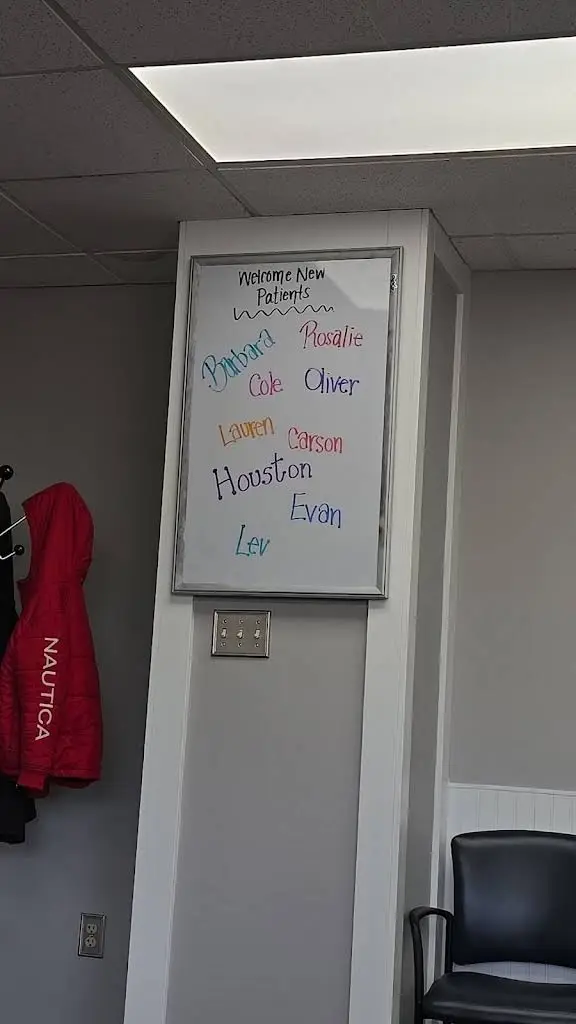 Welcome New
Patients
Barbara
Rosalie
Cole
Oliver
Lauren
Carson
Houston
Evan
Lev
NAUTICA